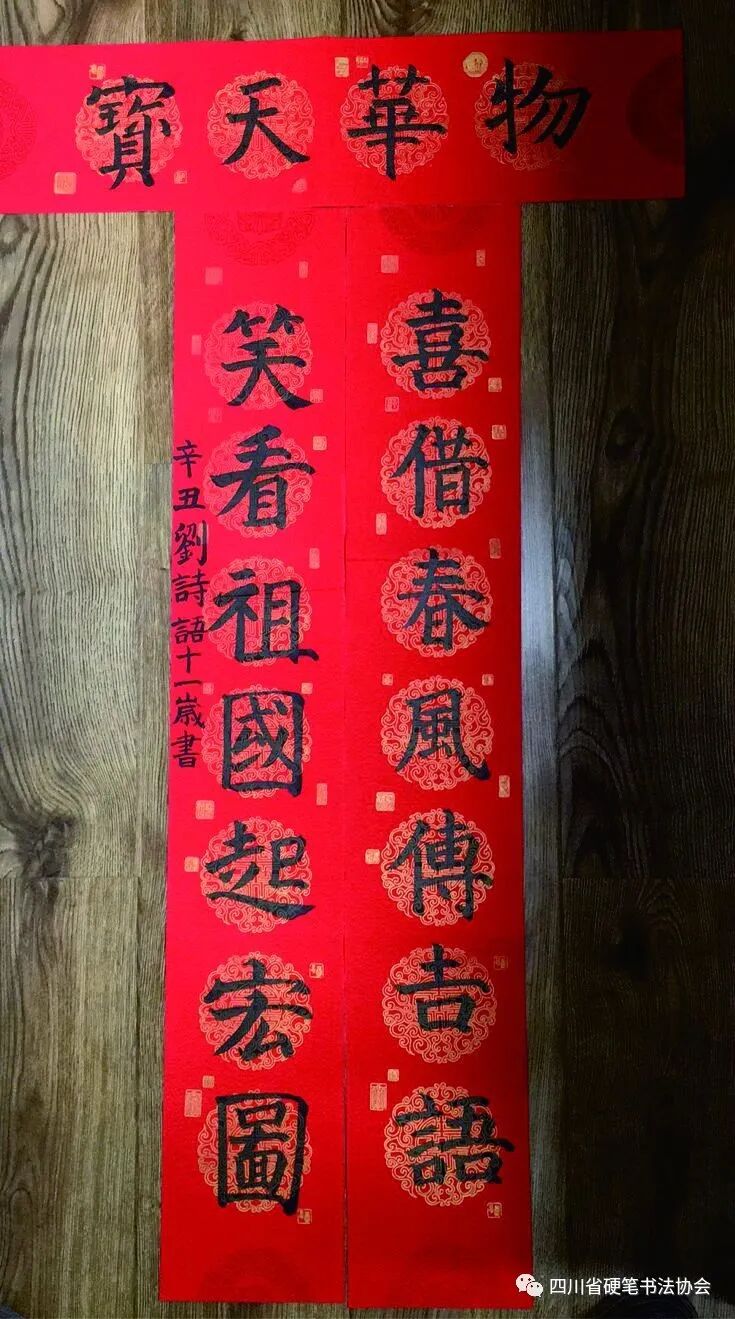 物華天寶
喜借春風傳吉語
笑看祖國起宏圖
辛丑劉詩語十一歲書
四川省硬笔书法协会